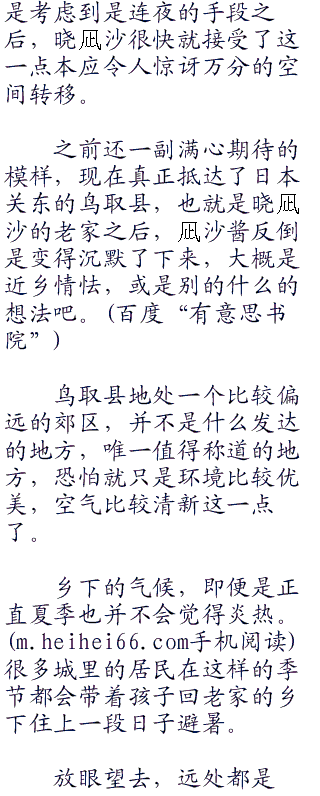 是考虑到是连夜的手段之
后，晓凪沙很快就接受了这
一点本应令人惊讶万分的空
间转移。
之前还一副满心期待的
模样，现在真正抵达了日本
关东的鸟取县，也就是晓凪
沙的老家之后，凪沙酱反倒
是变得沉默了下来，大概是
近乡情怯，或是别的什么的
想法吧。(百度“有意思书
院”)
鸟取县地处一个比较偏
远的郊区，并不是什么发达
的地方，唯一值得称道的地
方，恐怕就只是环境比较优
美，空气比较清新这一点
了。
乡下的气候，即便是正
直夏季也并不会觉得炎热。
(m.heihei66.com手机阅读)
很多城里的居民在这样的季
节都会带着孩子回老家的乡
下住上一段日子避暑。
放眼望去，远处都是